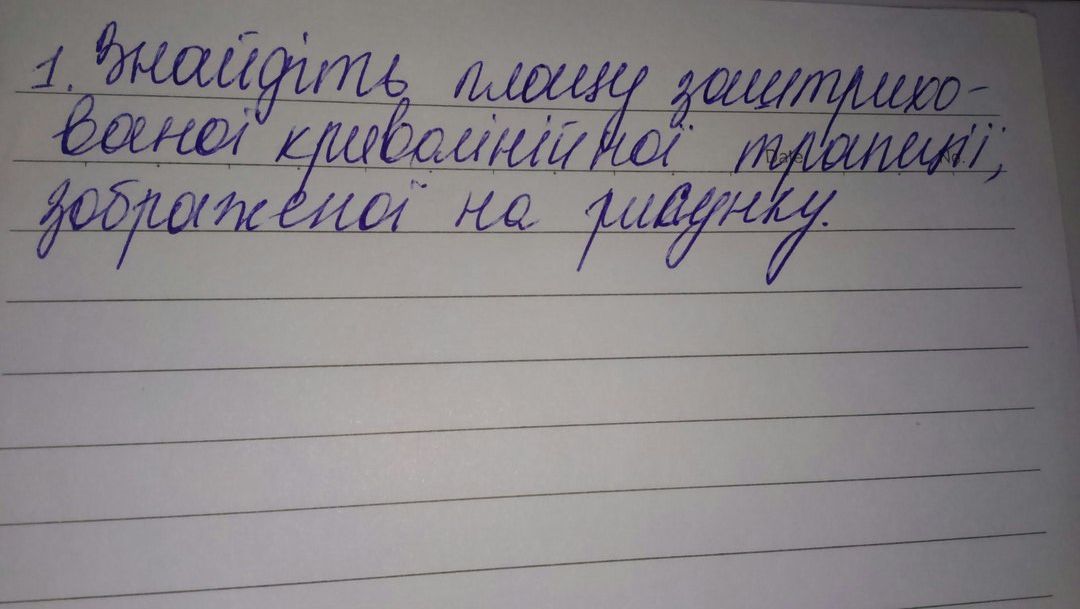 1. Знайдіть площу заштрихо-
ваної криволінійної трапеції,
зображеної на рисунку.
Date
No.